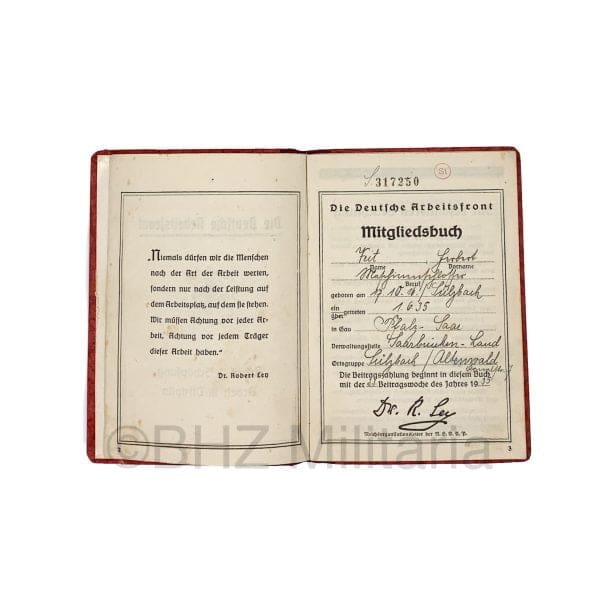 „Niemals dürfen wir die Menschen
nach der Art der Arbeit werten,
sondern nur nach der Leistung auf
dem Arbeitsplatz, auf dem sie stehen.
Wir müssen Achtung vor jeder Ar-
beit, Achtung vor jedem Träger
dieser Arbeit haben.“
Dr. Robert Ley
2
S 317250
St
Die Deutsche Arbeitsfront
Mitgliedsbuch
Veit
Name Vorname
Beruf
geboren am 10. Sulzbach
ein
über getreten 1.6.35
in Gau Pfalz-Saar
Verwaltungsstelle Saarbrücken-Land
Ortsgruppe Sulzbach / Altenwald
Die Beitragszahlung beginnt in diesem Buch
mit der Beitragswoche des Jahres 1935
Dr. R. Ley
Reichsorganisationsleiter der N.S.D.A.P.
3
©BHZ Militaria